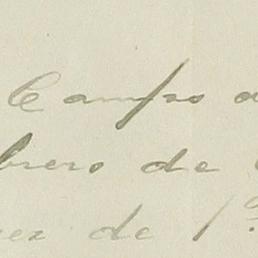 Campo
brero de
ez de 1ª